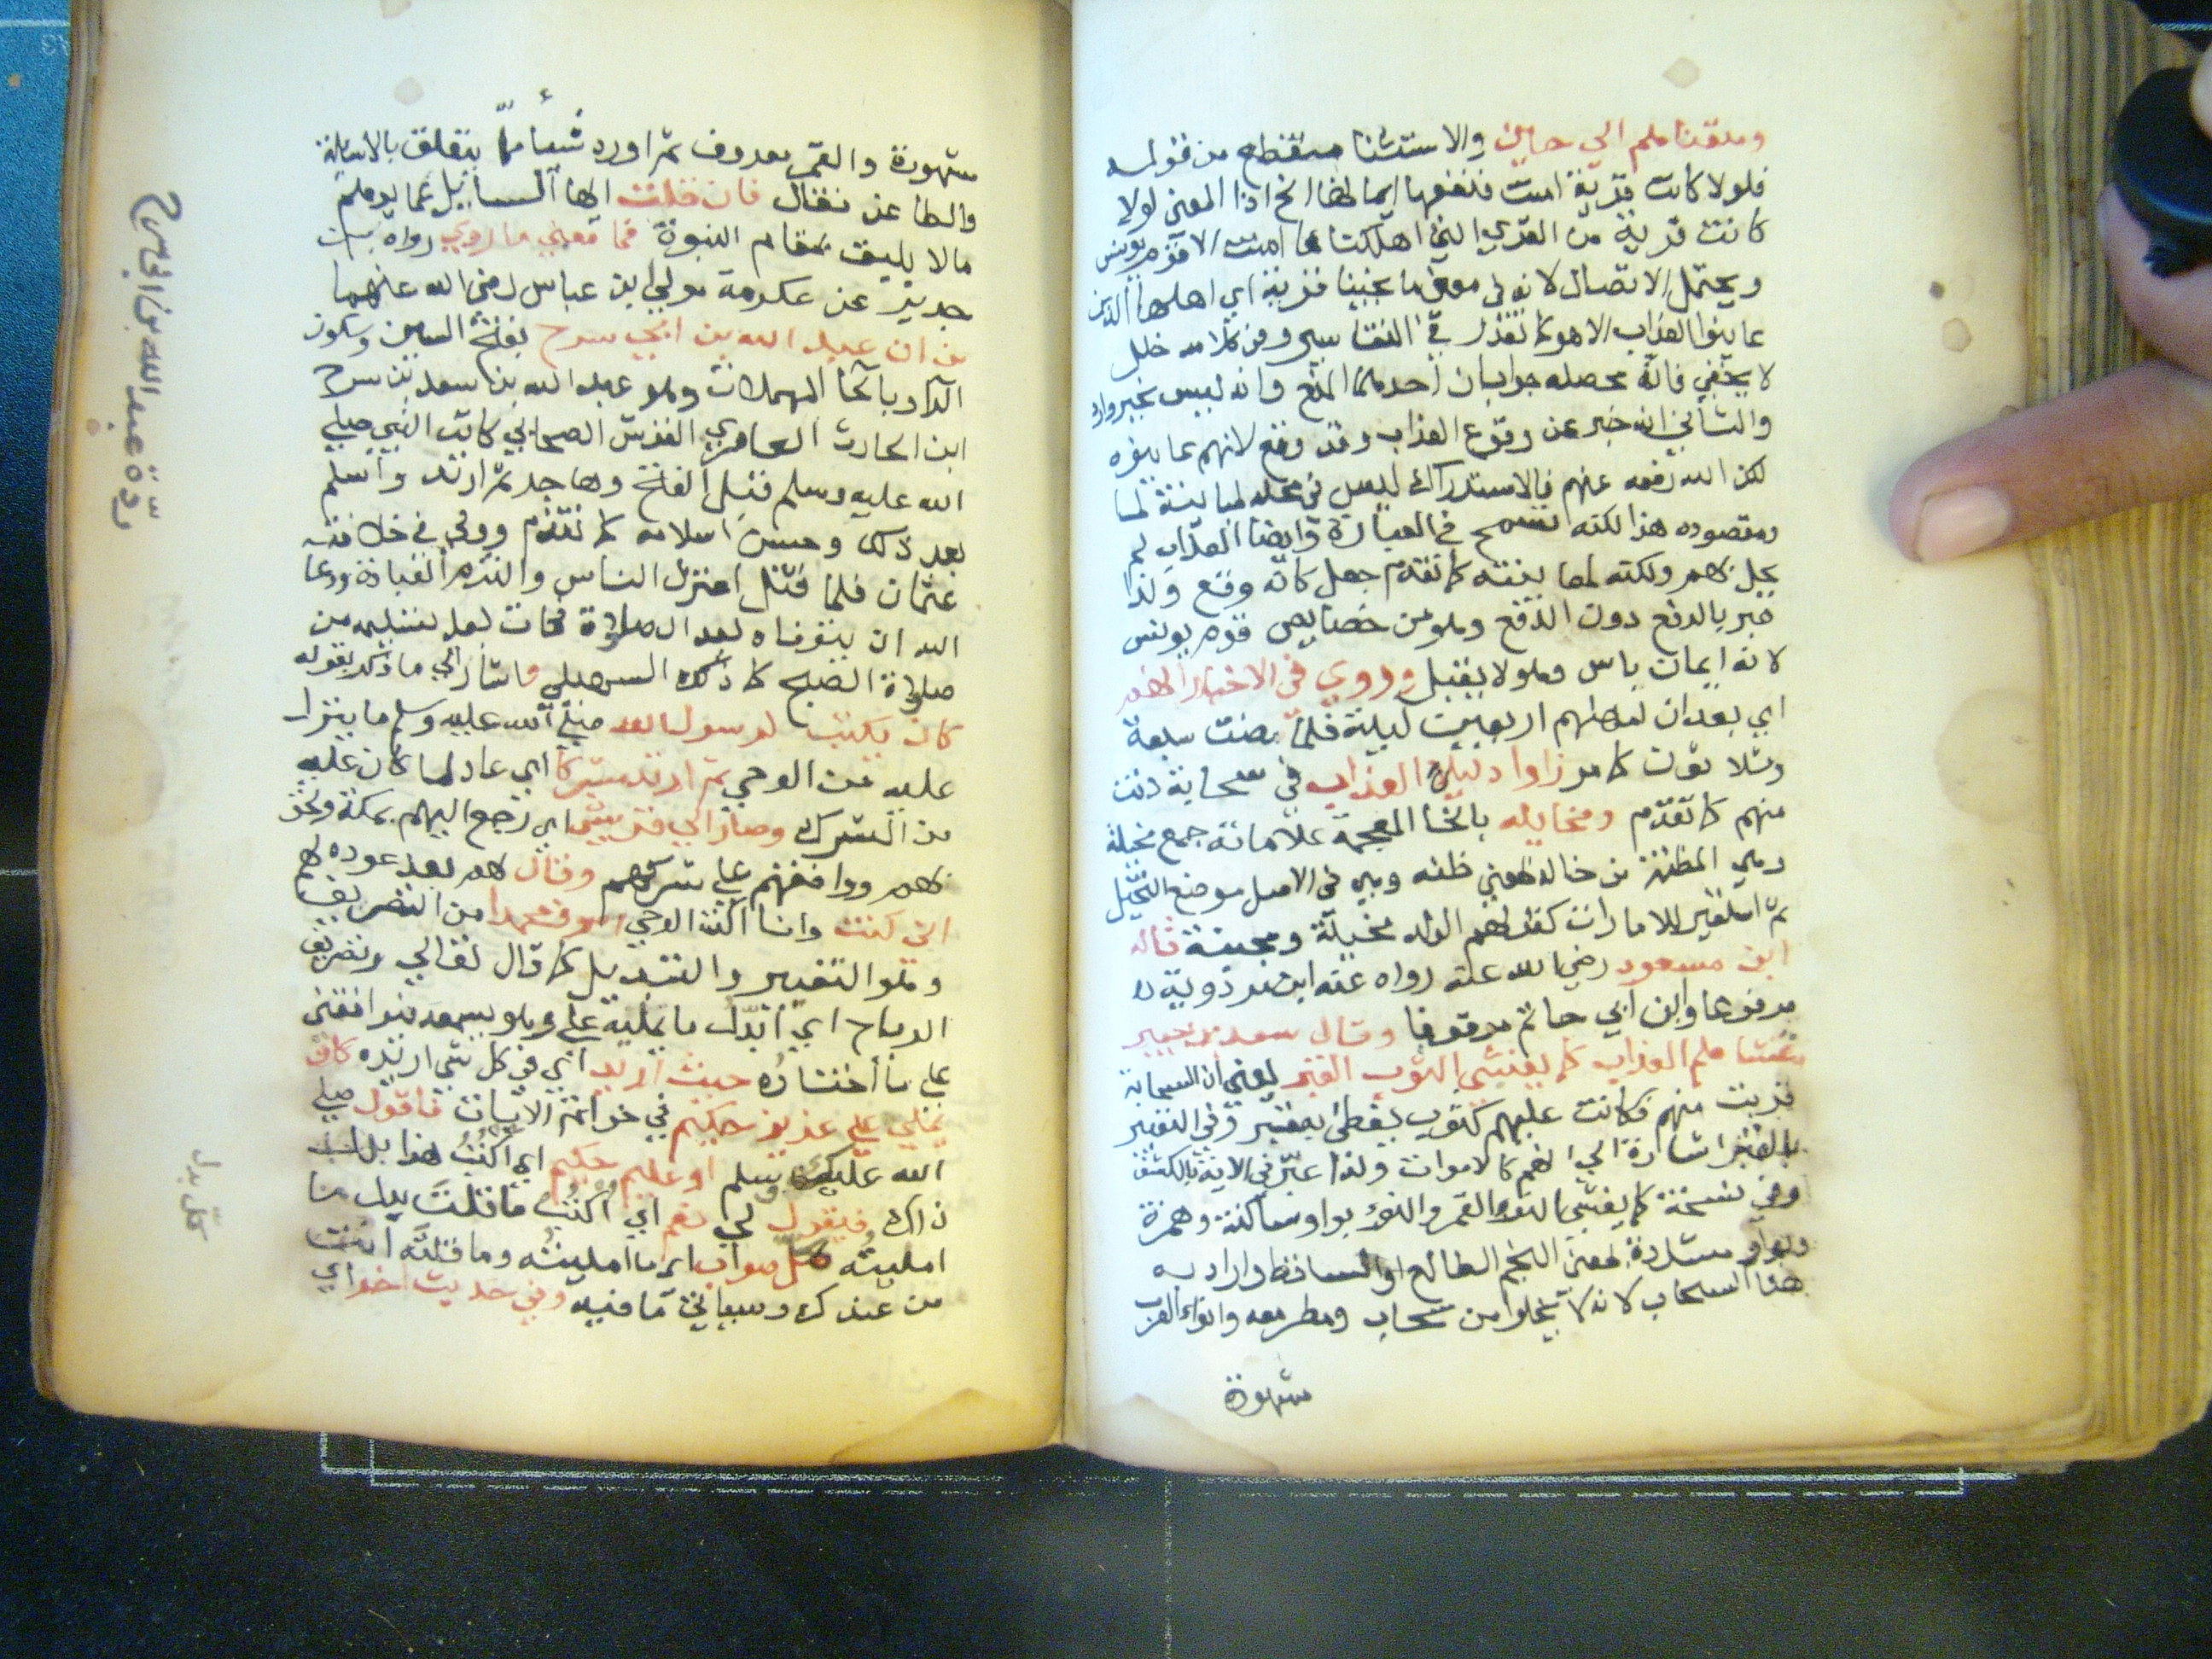 ومتعناهم الي حين والاستثنا منقطع من قوله
فلولا كانت قرية امنت فنفعها ايمانها الخ اذا المعني لولا
كانت قرية من القري التي اهلكناها امنت الا قوم يونس
ويحتمل الاتصال لانه في معني ما نجينا قرية اي اهلها الذين
عاينوا العذاب الا هو كما تقرر في التفاسير وفي كلامه خلل
لا يخفي فانه محصله جوابان احدهما المنع وانه ليس بخبر وارد
والثاني انه خبر عن وقوع العذاب وقد وقع لانهم عاينوه
لكن الله رفعه عنهم فالاستدراك ليس في محله لمباينته لما
ومقصوده هذا لكنه تسمح في العبارة وايضا العذاب لم
يحل بهم ولكنه لمعاينته كما تقدم جعل كانه وقع ولذا
عبر بالرفع دون الدفع وهو من خصايص قوم يونس
لانه ايمان ياس وهو لا يقبل وروي في الاخبار انهم
اي بعد ان امهلهم اربعين ليلة فلما مضت سبعة
وثلاثون كما مر راوا دليل العذاب في سحابة دنت
منهم كما تقدم ومخايله بالخا المعجمة علاماته جمع مخيلة
وهي المظنة من خاله بمعني ظنه وهي في الاصل موضع التخيل
ثم استعير للامارات كقولهم الولد مخيلة ومجبنة قاله
ابن مسعود رضي الله عنه رواه عنه ابن مردويه
مرفوعا وابن ابي حاتم موقوفا وقال سعيد بن جبير
غشاهم العذاب كما يغشي الثوب القبر يعني ان السحابة
قربت منهم فكانت عليهم كثوب يغطي به قبر وفي التعبير
بالقبر اشارة الي انهم كالاموات ولذا عبر في الاية بالكشف
وفي نسخة كما يغشي النوء القمر والنوء بواو ساكنة وهمزة
وبواو مشددة بمعني النجم الطالع او الساقط واراد به
هنا السحاب لانه لا يخلوا من سحاب ومطر معه وانواء العرب
مشهورة
مشهورة والقمر معروف ثم اورد شيأ مما يتعلق بالاسئلة
والمطاعن فقال فان قلت ايها السايل عما يوهم
ما لا يليق بمقام النبوة فما معني ما روي رواه ابن
جرير عن عكرمة مولي ابن عباس رضي الله عنهما
من ان عبد الله بن ابي سرح بفتح السين وسكون
الرا وبالحا المهملات وهو عبد الله بن سعد بن سرح
ابن الحارث العامري القرشي الصحابي كاتب النبي صلي
الله عليه وسلم قبل الفتح وهاجر ثم ارتد واسلم
بعد ذلك وحسن اسلامه كما تقدم ووفي في خلافته
عثمان فلما قتل اعتزل الناس والتزم العبادة ودعا
الله ان يتوفاه بعد الصلاة فمات بعد تسليمه من
صلاة الصبح كما ذكره السهيلي واشار الي ما ذكر بقوله
كان يكتب لرسول الله صلي الله عليه وسلم ما ينزل
عليه من الوحي ثم ارتد مشركا اي عاد لما كان عليه
من الشرك وصار الي قريش اي رجع اليهم بمكة ولحق
بهم ووافقهم علي شركهم وقال لهم بعد عوده لهم
اني كنت وانا اكتب الوحي اصرف محمدا من التصريف
وهو التغيير والتبديل كما قال تعالي وتصريف
الرياح اي ابدل ما يمليه علي وهو يسمعه فيوافقني
علي ما اختاره حيث اريد اي في كل شي اريده كان
يملي علي عزيز حكيم في خواتم الايات فاقول صلي
الله عليه وسلم او عليم حكيم اي اكتب هذا بدل
ذاك فيقول لي نعم اي اكتب ما قلت بدل ما
امليته كل صواب اي ما امليته وما قلته انت
من عندك وسياتي ما فيه وفي حديث اخر اي
ردة عبد الله بن ابي سرح